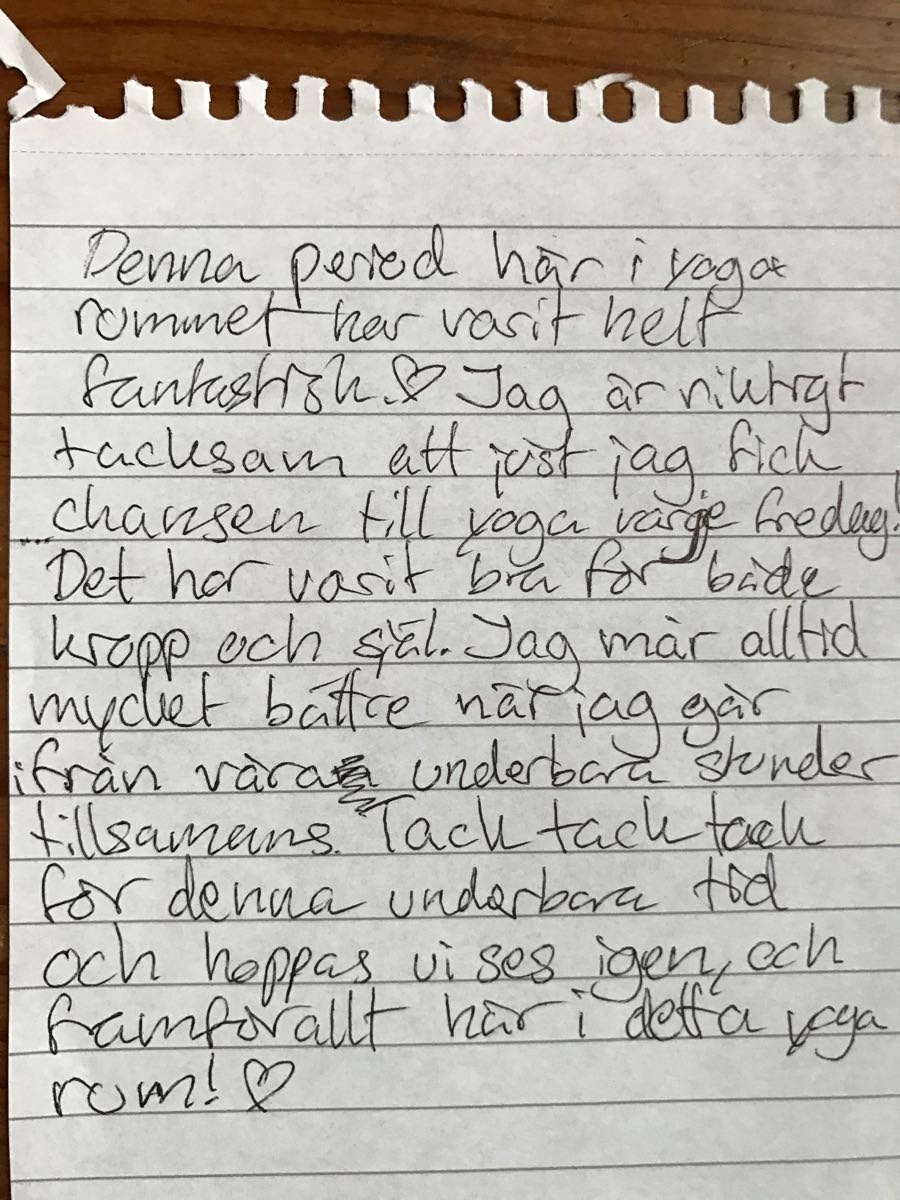 Denna period här i yoga
rommet har varit helt
fantastisk. ♡ Jag är riktigt
tacksam att just jag fick
chansen till yoga varje fredag!
Det har varit bra för både
kropp och själ. Jag mår alltid
mycket bättre när jag går
ifrån våra underbara stunder
tillsamans. Tack tack tack
för denna underbara tid
och hoppas vi ses igen, och
framförallt här i detta yoga
rum! ♡